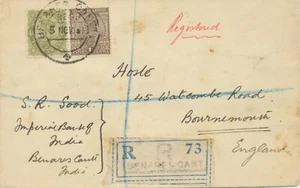 Registered
Hoste
45 Watcombe Road
Bournemouth
England
S. R. Sood
Imperial Bank of
India
Benares Cantt
India
R 73
BENARES CANT